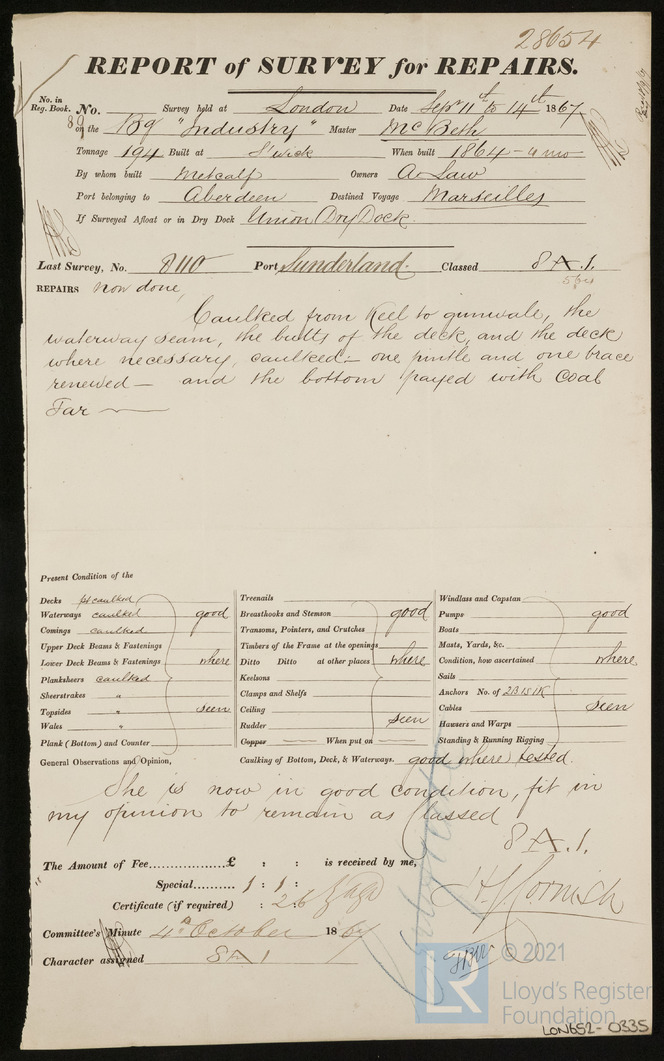 28654
REPORT of SURVEY for REPAIRS.
No. in Reg. Book. No. Survey held at London Date Sepr 11th to 14th 1867
89 on the Bg "Industry" Master McBeth
Tonnage 194 Built at S'wick When built 1864 - 4 mo
By whom built Metcalf Owners A. Law
Port belonging to Aberdeen Destined Voyage Marseilles
If Surveyed Afloat or in Dry Dock Union Dry Dock.
Last Survey, No. 8110 Port Sunderland. Classed 8 A. 1.
5/64
REPAIRS now done,
Caulked from Keel to gunwale, the
waterway seam, the butts of the deck, and the deck
where necessary, caulked:- one pintle and one brace
renewed - and the bottom payed with Coal
Tar
Present Condition of the
Decks pt caulked
Waterways caulked good
Comings caulked
Upper Deck Beams & Fastenings
Lower Deck Beams & Fastenings where
Planksheers caulked
Sheerstrakes "
Topsides " seen
Wales "
Plank (Bottom) and Counter
Treenails
Breasthooks and Stemson good
Transoms, Pointers, and Crutches
Timbers of the Frame at the openings
Ditto Ditto at other places where
Keelsons
Clamps and Shelfs
Ceiling
Rudder seen
Copper When put on
Windlass and Capstan
Pumps good
Boats
Masts, Yards, &c.
Condition, how ascertained where
Sails
Anchors No. of 2B 1S 1K
Cables seen
Hawsers and Warps
Standing & Running Rigging
General Observations and Opinion, Caulking of Bottom, Deck, & Waterways. good where tested.
She is now in good condition, fit in
my opinion to remain as Classed
8 A. 1.
The Amount of Fee £ : : is received by me,
Special 1 : 1 :
Certificate (if required) : 2.6
J H Cornish
Committee's Minute 4th October 1867
Character assigned 8 A 1
© 2021
LR
Lloyd's Register
Foundation
LON652-0335